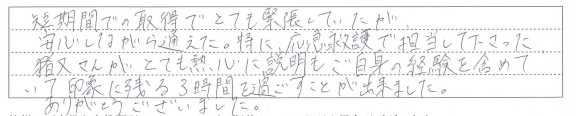 短期間での取得でとても緊張していたが、
安心しながら通えた。特に、応急救護で担当して下さった
猪又さんがとても熱心に説明もご自身の経験を含めて
いて印象に残る3時間を過ごすことが出来ました。
ありがとうございました。